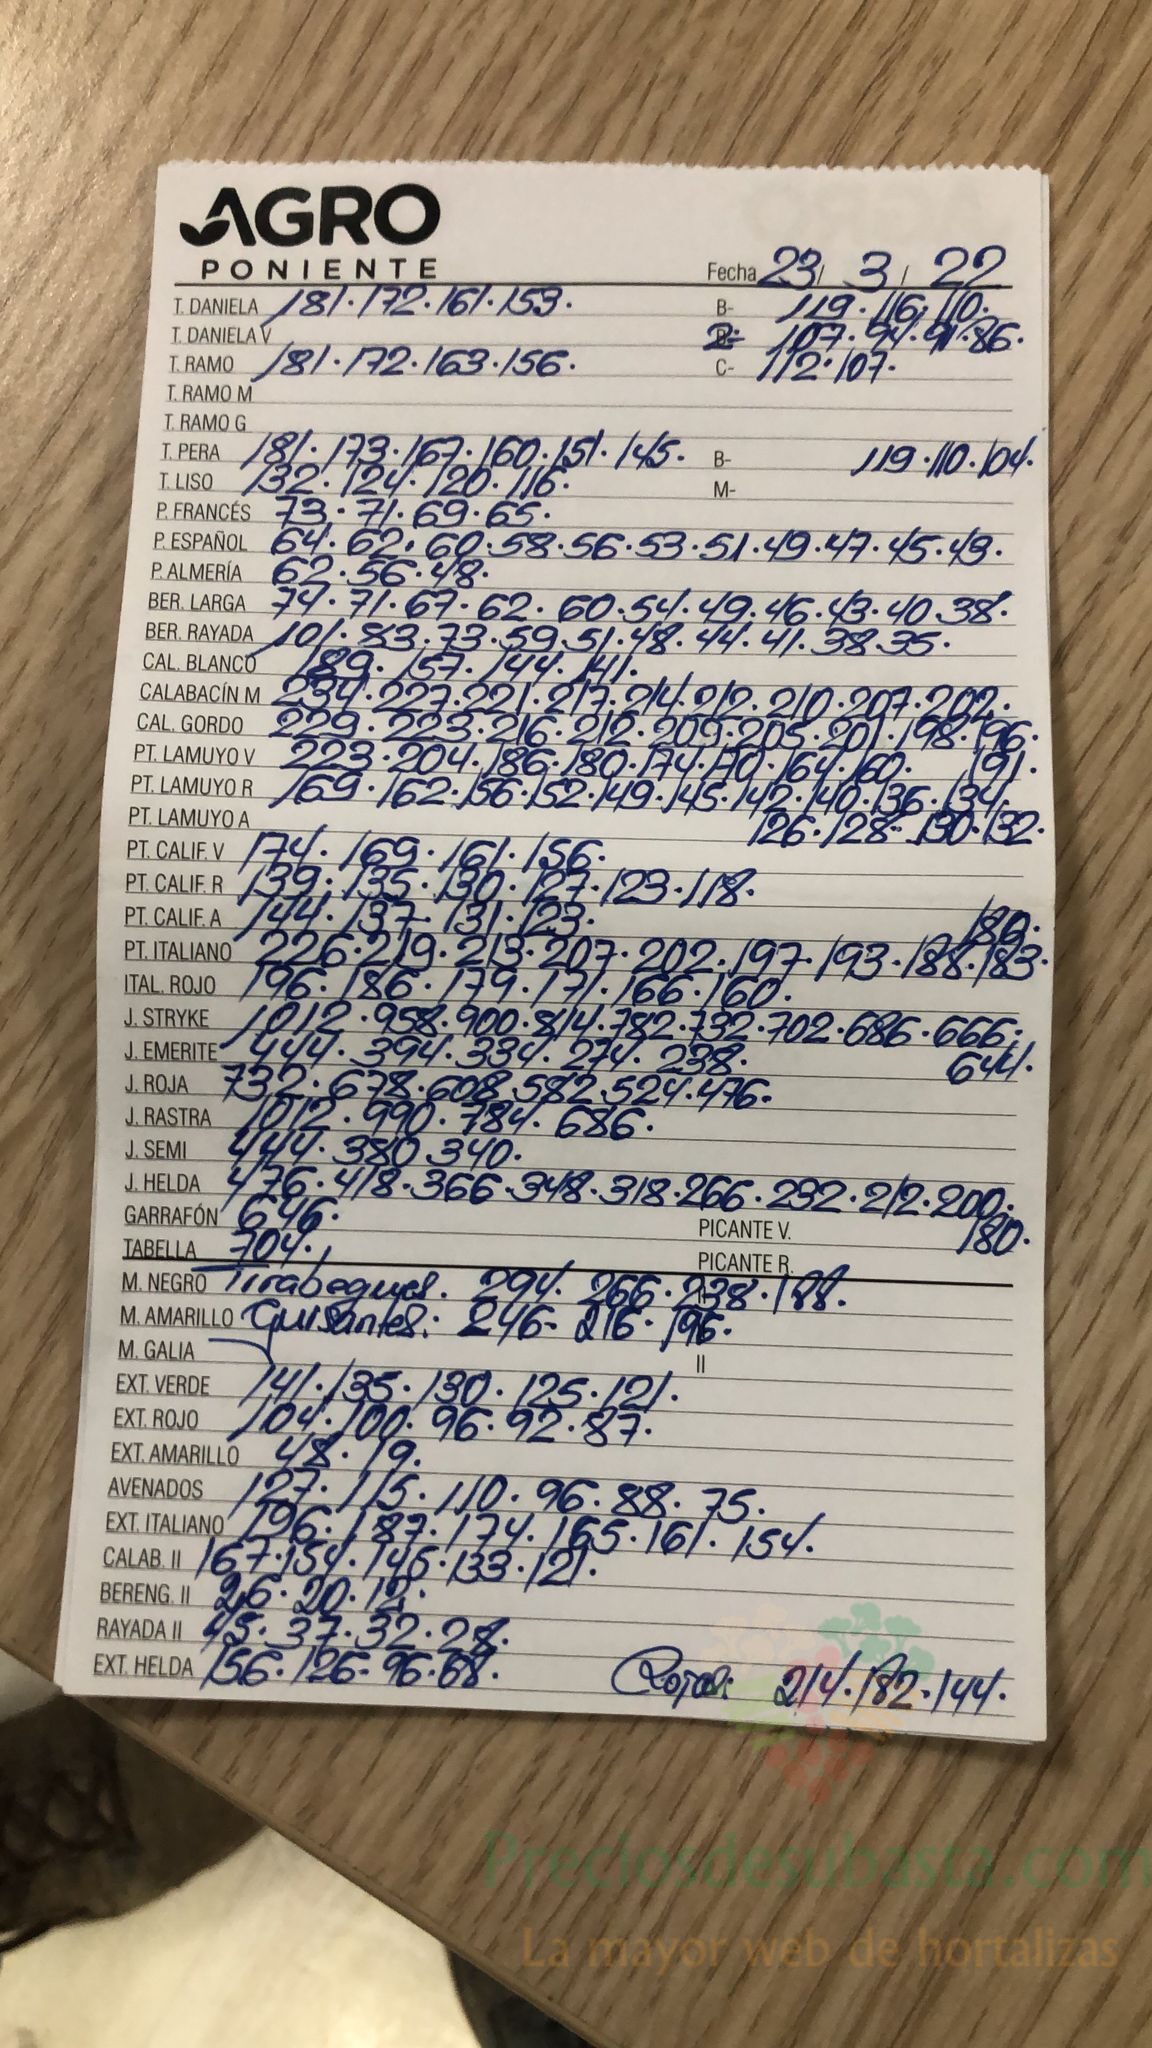 AGRO
PONIENTE
Fecha 23/ 3 / 22
T. DANIELA 181.172.161.153. B- 119.116.110.
T. DANIELA V 2- 107.94.91.86.
T. RAMO 181.172.163.156. C- 112.107.
T. RAMO M
T. RAMO G
T. PERA 181.173.167.160.151.145. B- 119.110.104.
T. LISO 132.124.120.116. M-
P. FRANCÉS 73.71.69.65.
P. ESPAÑOL 64.62.60.58.56.53.51.49.47.45.43.
P. ALMERÍA 62.56.48.
BER. LARGA 74.71.67.62.60.54.49.46.43.40.38.
BER. RAYADA 101.83.73.59.51.48.44.41.38.35.
CAL. BLANCO 189.157.144.141.
CALABACÍN M 234.227.221.217.214.212.210.207.202.
CAL. GORDO 229.223.216.212.209.205.201.198.196.
191.
PT. LAMUYO V 223.204.186.180.174.170.164.160.
PT. LAMUYO R 169.162.156.152.149.145.142.140.136.134.
126.128.130.132.
PT. LAMUYO A
PT. CALIF. V 174.169.161.156.
PT. CALIF. R 139.135.130.127.123.118.
PT. CALIF. A 144.137.131.123.
180.
PT. ITALIANO 226.219.213.207.202.197.193.188.183.
ITAL. ROJO 196.186.179.171.166.160.
J. STRYKE 1012.958.900.814.782.732.702.686.666.
644.
J. EMERITE 444.394.334.274.238.
J. ROJA 732.678.608.582.524.476.
J. RASTRA 1012.990.784.686.
J. SEMI 444.380.340.
J. HELDA 476.418.366.348.318.266.232.212.200.
180.
GARRAFÓN 646. PICANTE V.
TABELLA 704. PICANTE R.
M. NEGRO Tirabeques. 294.266.238.188.
M. AMARILLO Guisantes: 246.216.196.
M. GALIA II
EXT. VERDE 141.135.130.125.121.
EXT. ROJO 104.100.96.92.87.
EXT. AMARILLO 48.19.
AVENADOS 127.115.110.96.88.75.
EXT. ITALIANO 196.187.174.165.161.154.
CALAB. II 167.154.145.133.121.
BERENG. II 26.20.12.
RAYADA II 45.37.32.28.
EXT. HELDA 156.126.96.68. Rojas: 214.182.144.
Preciosdesubasta.com
La mayor web de hortalizas